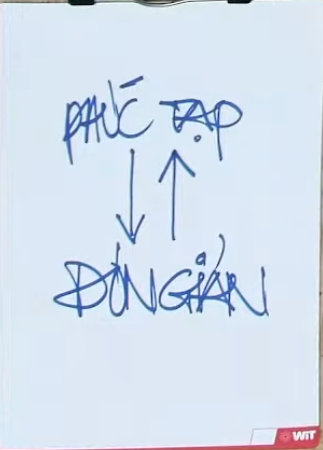 PHỨC TẠP
ĐƠN GIẢN
WiT